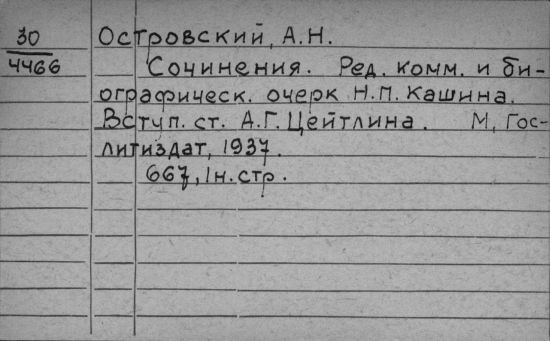 30 Островский, А.Н.
4466 Сочинения. Ред. комм. и би-
ографическ. очерк Н.П. Кашина.
Вступ. ст. А.Г. Цейтлина. М, Гос-
литиздат, 1937.
667, 1н.стр.